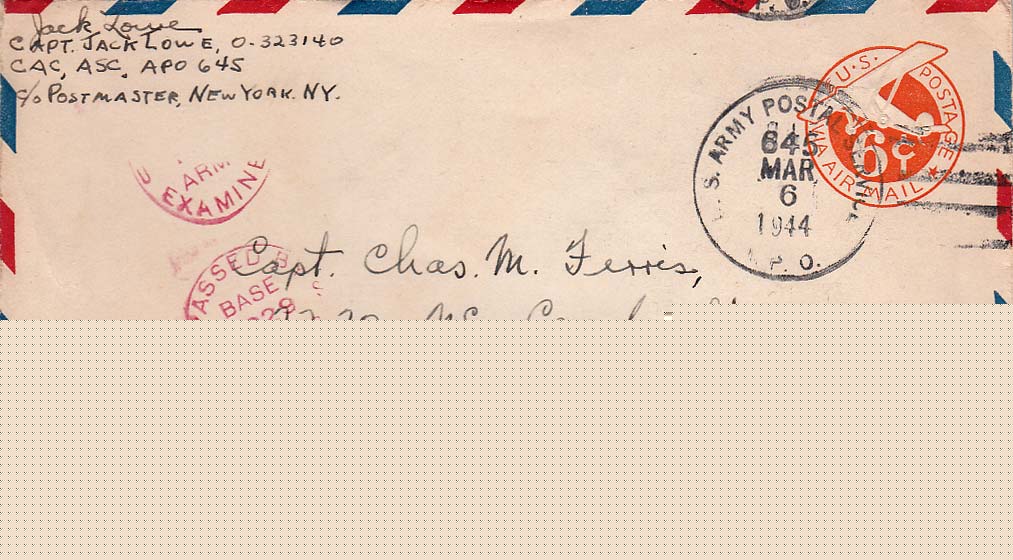 Jack Lowe
CAPT. JACK LOWE, O-323140
CAC, ASC, APO 645
c/o POSTMASTER, NEW YORK. NY.
U.S. POSTAGE
6¢
VIA AIR MAIL
U.S. ARMY POSTAL SERVICE
645
MAR
6
1944
A.P.O.
P. O.
ARM
EXAMINE
Capt. Chas. M. Ferris,
ASSED B
BASE